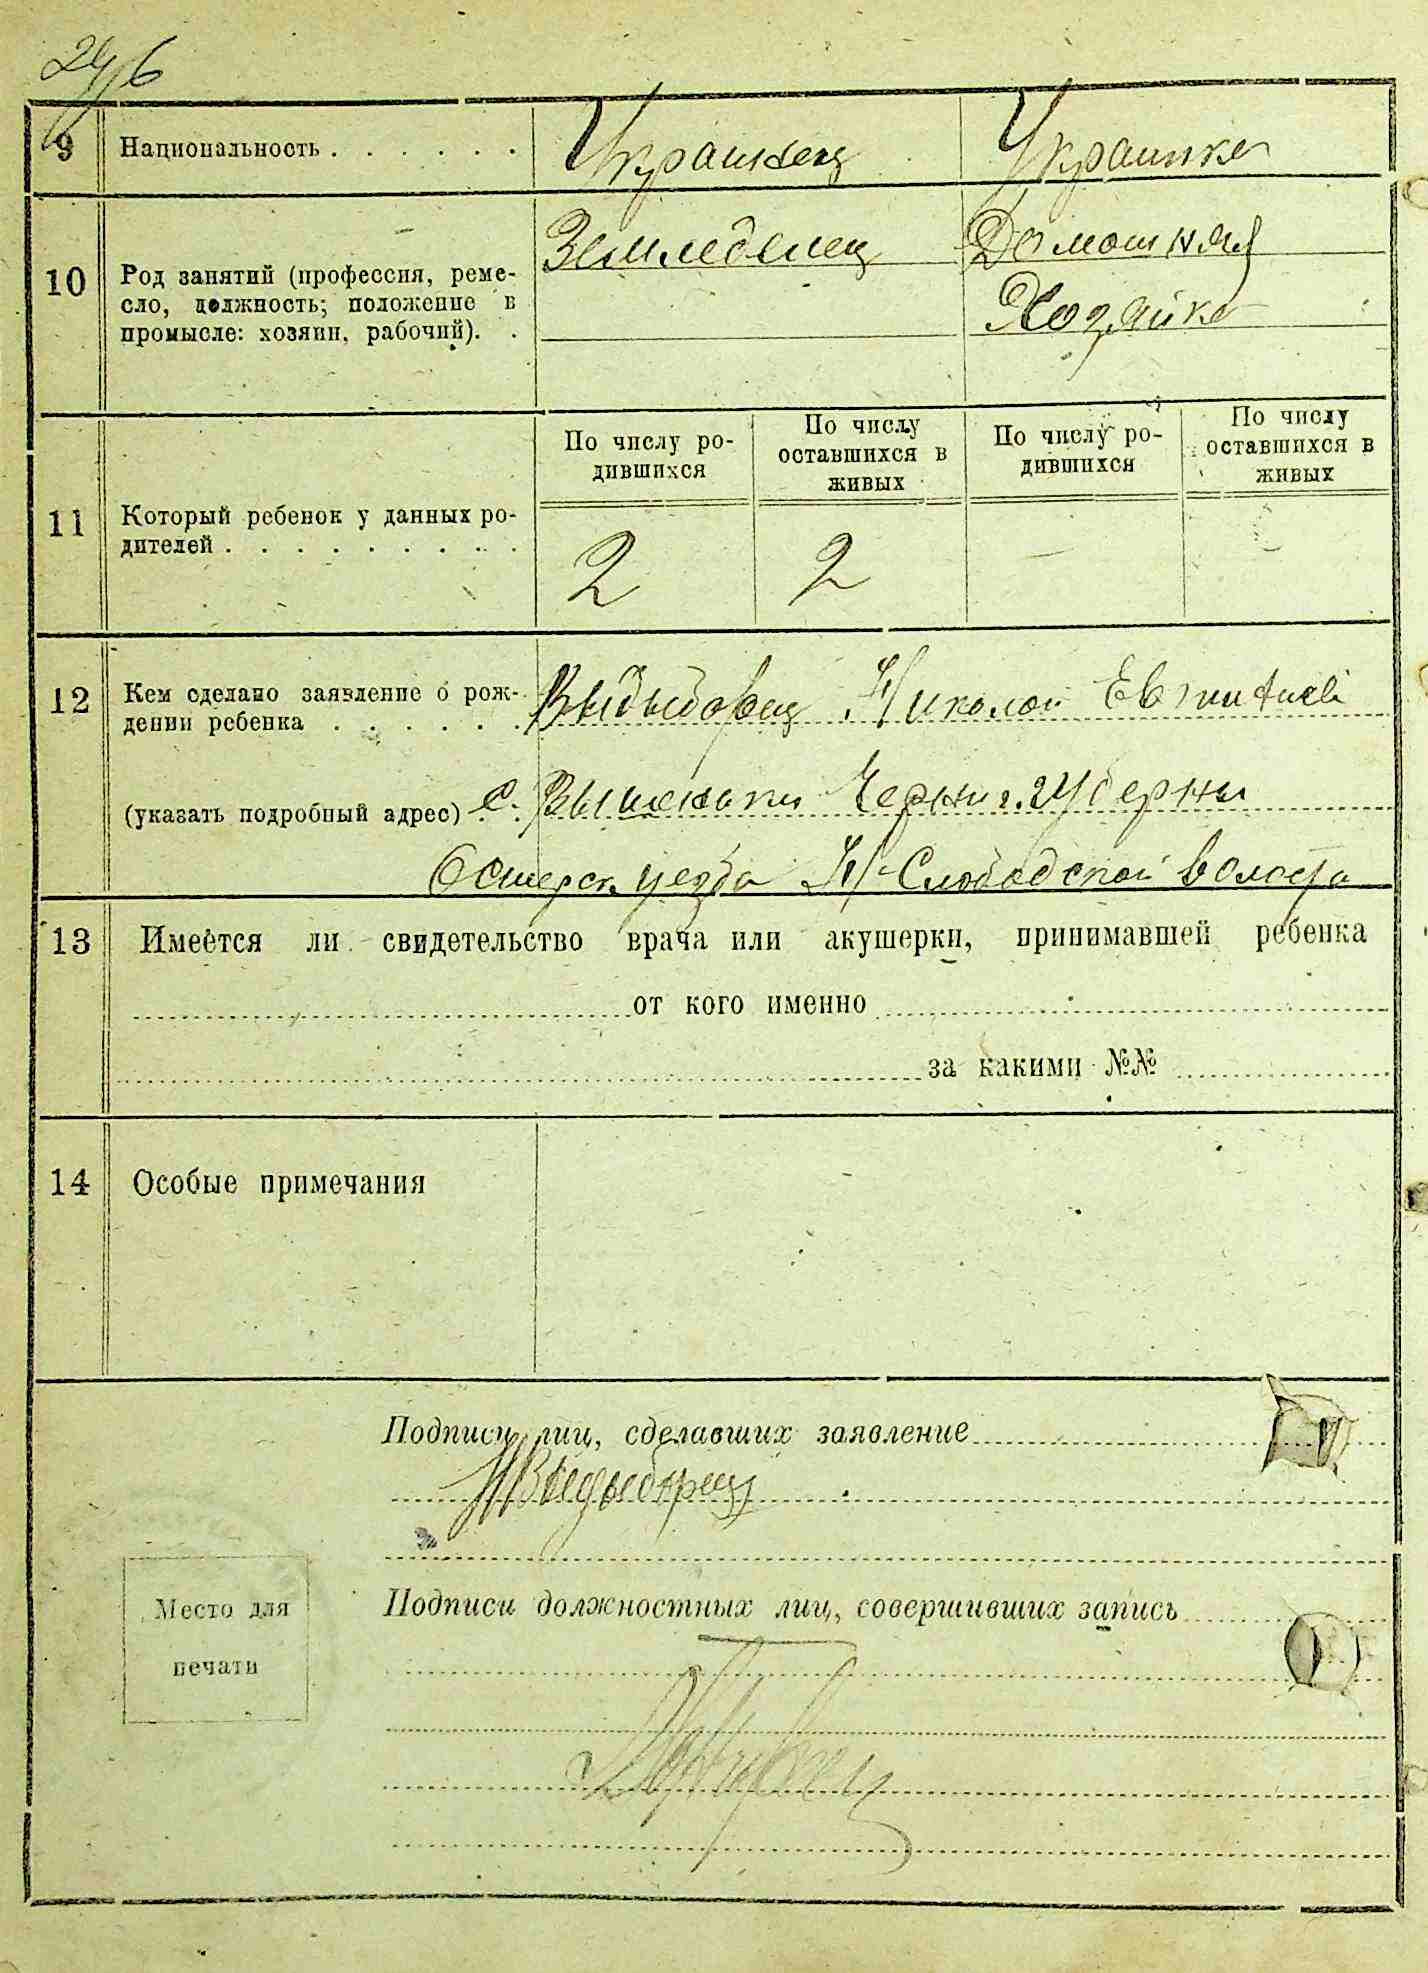 9 Национальность . . . . . . Украинец Украинка
10 Род занятий (профессия, реме-
сло, должность; положение в
промысле: хозяин, рабочий). . Земледелец Домашняя
Хозяйка
11 Который ребенок у данных ро-
дителей . . . . . . . . . .
По числу ро-
дившихся
По числу
оставшихся в
живых
По числу ро-
дившихся
По числу
оставшихся в
живых
2 2
12 Кем сделано заявление о рож-
дении ребенка . . . . . . Выдыборец Николай
(указать подробный адрес) с. Вышеньки Черниг. Губернии
Остерск. уезда Н-Слободской волости
13 Имеется ли свидетельство врача или акушерки, принимавшей ребенка
от кого именно
за какими №№
14 Особые примечания
Подписи лиц, сделавших заявление
НВыдыборец
Место для
печати
Подписи должностных лиц, совершивших запись